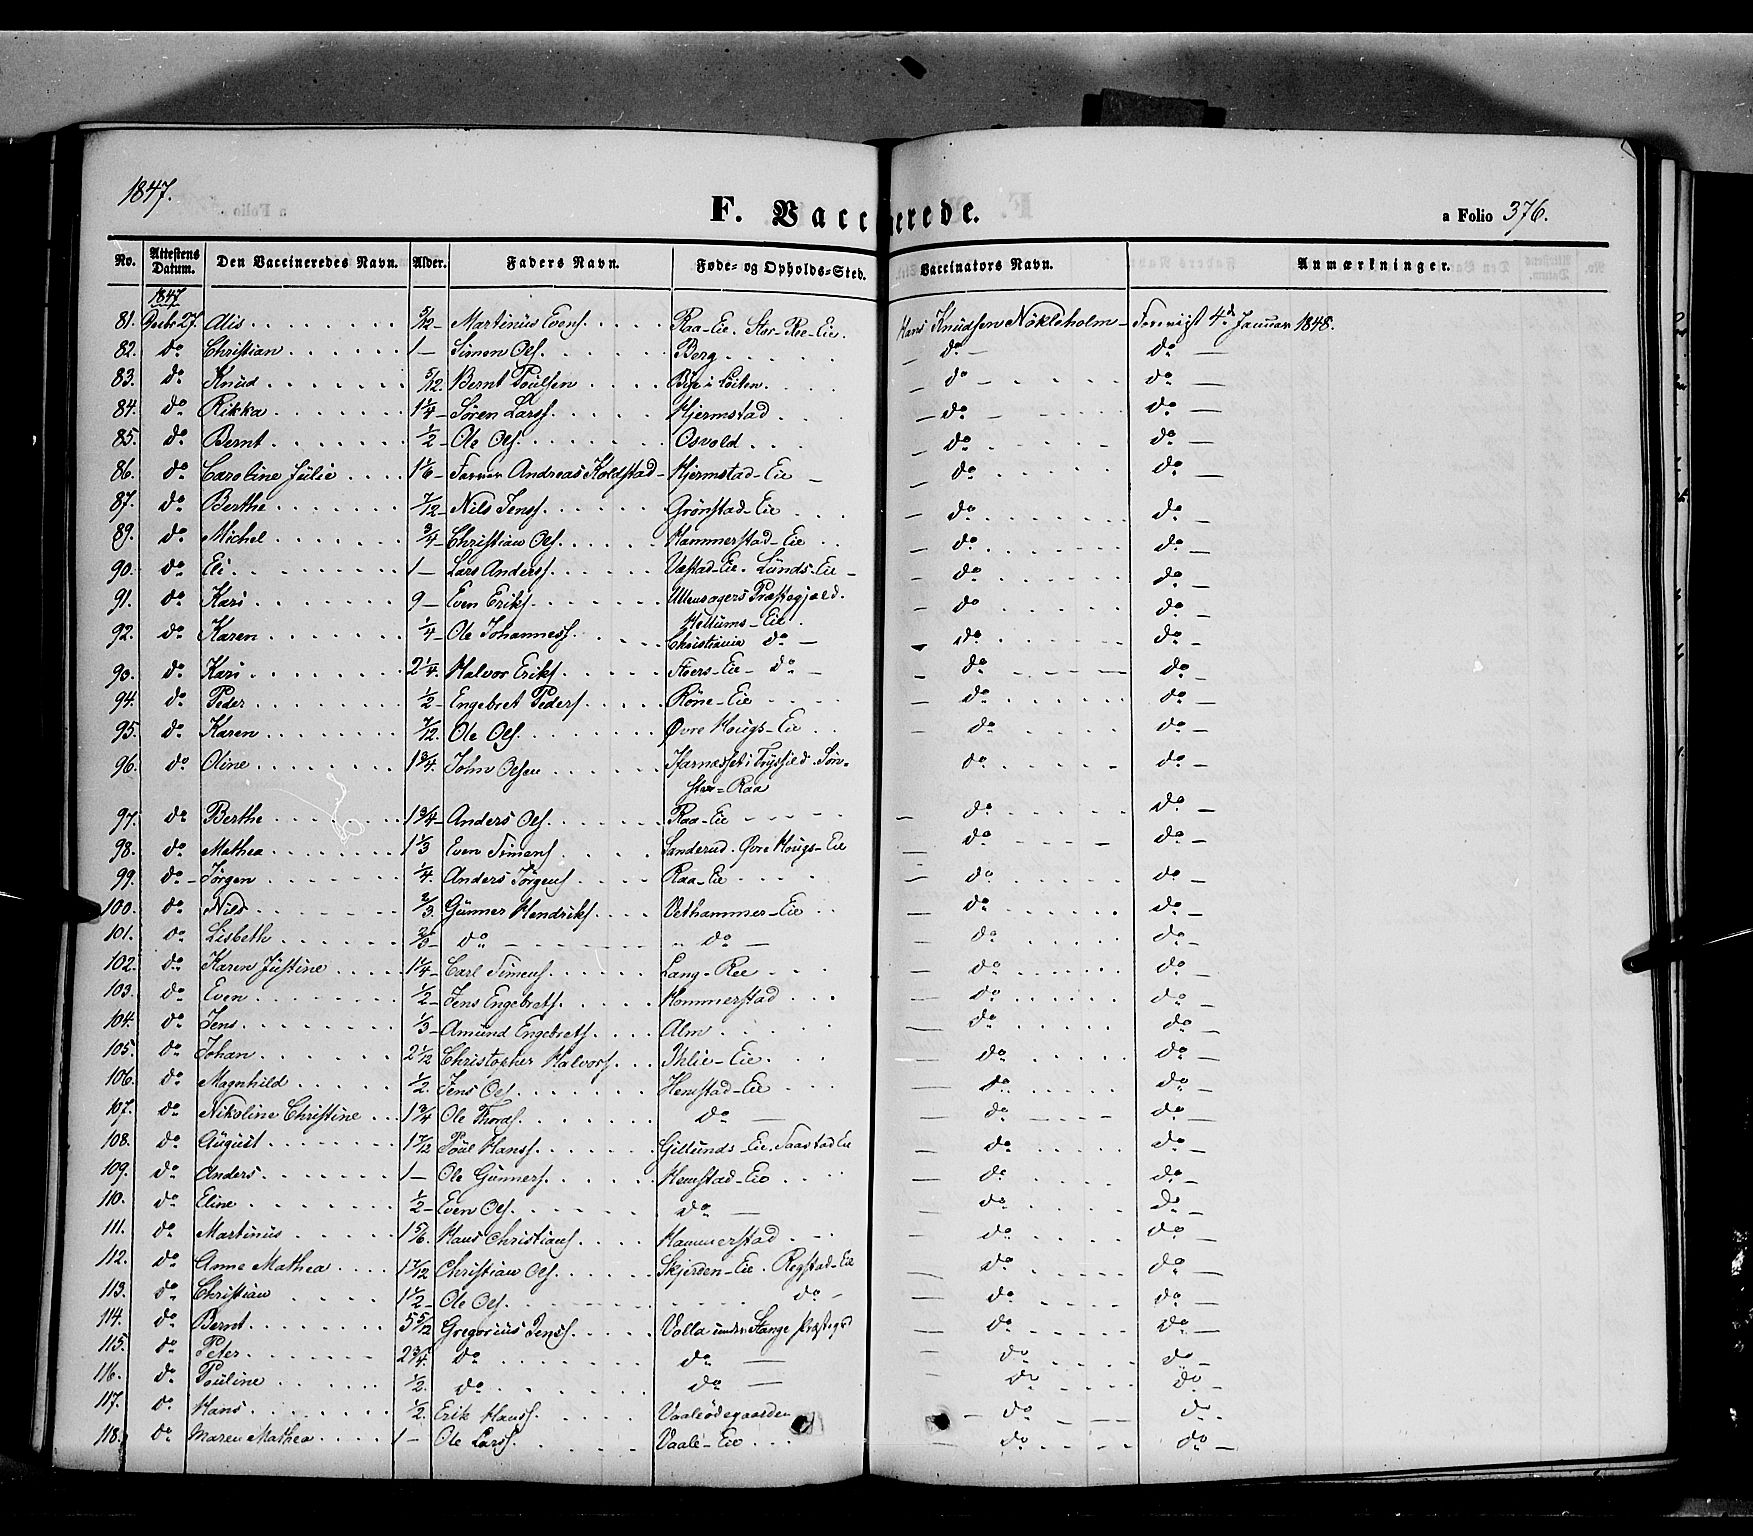 1847.
F. Vaccinerede.
a Folio 376.
No. Attestens Datum. Den Vaccineredes Navn. Alder. Faders Navn. Føde- og Opholds-Sted. Vaccinators Navn. Anmærkninger.
1847
81. Decbr 27. Alis 5/12 Martinus Evens. Raa-Eie. Stor-Ree-Eie. Hans Knudsen Nökleholm Foreviist 4de Januar 1848.
82. do Christian 1 Simen Ols. Berg do do
83. do Knud 5/12. Bernt Poulsen i Löiten. do do
84. do Rikka 1 1/4 Sören Larss. Hjermstad do do
85. do Bernt 1/2 Ole Ols. Osvold do do
86. do Caroline Julie 1 1/6 Andreas Koldstad Hjermstad-Eie do do
87. do Berthe 7/12 Nils Jenss. Grönstad-Eie do do
89. do Michel 3/4 Christian Ols. Hammerstad-Eie do do
90. do Eli 1 Lars Anderss. Vestad-Eie. Lunds-Eie do do
91. do Kari 9 Even Eriks. Ullensagers Præstegjæld. do do
Hellums-Eie.
92. do Karen 1/4 Ole Johanness. Christiania do do do
93. do Kari 2 1/4. Halvor Eriks. Stoers-Eie do do do
94. do Peder 1/2 Engebret Peders. Röne-Eie do do
95. do Karen 7/12. Ole Ols. Øvre Hougs-Eie do do
96. do Oline 1 3/4. John Olsen i Trysild. Søn- do do
stre-Raa
97. do Berthe 1 3/4 Anders Ols. Raa-Eie do do
98. do Mathea 1 1/3 Even Simens. Sanderud. Øvre Hougs-Eie do do
99. do Jørgen 1/4. Anders Jørgens. Raa-Eie do do
100. do Nils 2/3. Gunner Hendriks. Vethammer-Eie do do
101. do Lisbeth 2/3 do do do do
102. do Karen Justine 1 1/4 Carl Simens. Lang-Ree do do
103. do Even 1/2 Jens Engebrets. Hommerstad do do
104. do Jens 1/3 Amund Engebrets. Alm do do
105. do Johan 2 1/12 Christopher Halvors. Ihlie-Eie. do do
106. do Magnhild 1/2. Jens Ols. Hemstad-Eie do do
107. do Nikoline Christine 1 3/4 Ole Thoras. do do do
108. do August 1 7/12 Poul Hanss. Gillunds-Eie. Saastad Eie do do
109. do Anders 1 Ole Gunners. Hemstad-Eie do do
110. do Eline 1/2 Even Ols. do do do
111. do Martinus 1 5/6 Hans Christians. Hammerstad do do
112. do Anne Mathea 1 7/12 Christian Ols. Skjerden-Eie. Regstad-Eie do do
113. do Christian 1 1/2 Ole Ols. do do do
114. do Bernt 5 5/12 Gregorius Jenss. Volla under Stange Præstegd do do
115. do Peter 2 3/4 do do do do
116. do Pouline 1/2. do do do do
117. do Hans 1/2. Erik Hanss. Vaaleödegaarden do do
118. do Maren Mathea 1 Ole Larss. Vaale-Eie do do